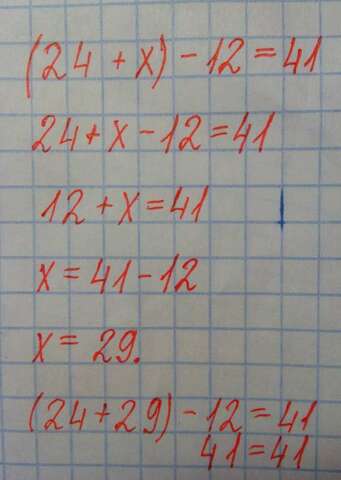 (24 + x) - 12 = 41
24 + x - 12 = 41
12 + x = 41
x = 41 - 12
x = 29.
(24 + 29) - 12 = 41
41 = 41